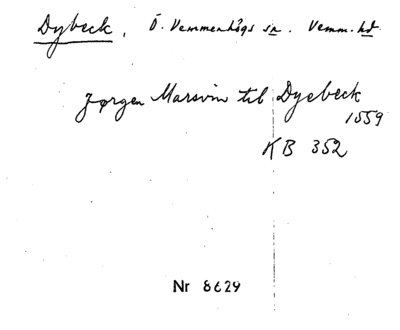 Dybeck, Ö. Vemmenhögs sn. Vemm. hd
Jørgen Marsvin til Dyebeck
1559
KB 352
Nr 8629